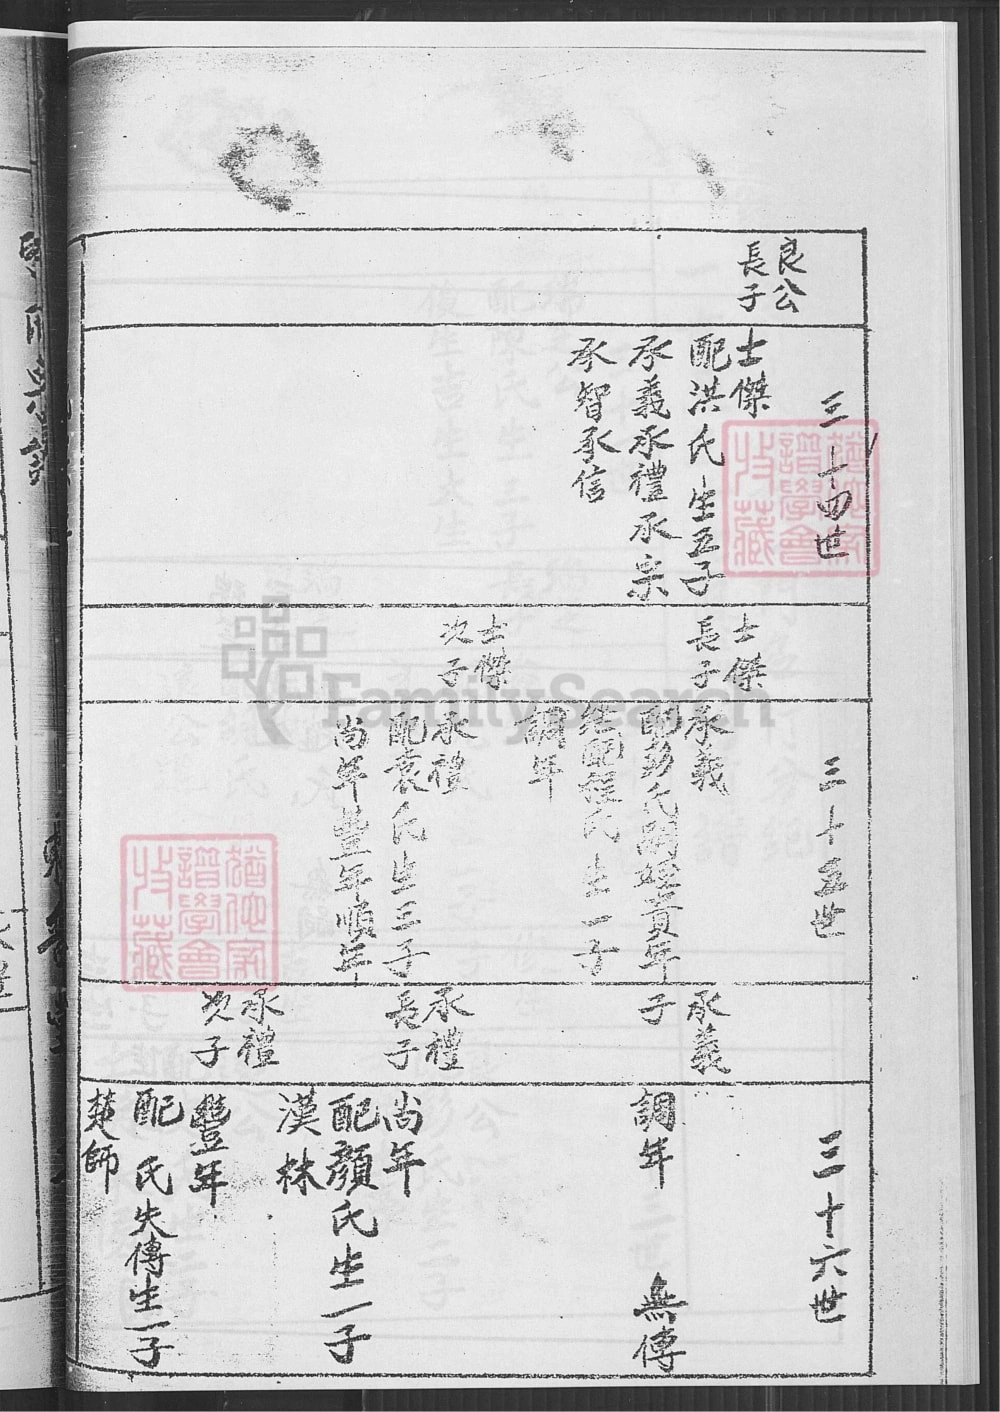 良公
長子
三十四世
士傑
配洪氏生五子
承義承禮承宗
承智承信
士傑
長子
士傑
次子
三十五世
承義
配彭氏嗣姪貴年
継配程氏生一子
調年
承禮
配袁氏生三子
尚年豐年順年
承義
子
承禮
長子
承禮
次子
三十六世
調年 無傳
尚年
配顏氏生一子
漢林
豐年
配 氏失傳生一子
楚師
譜學會
收藏
譜學會
收藏
FamilySearch